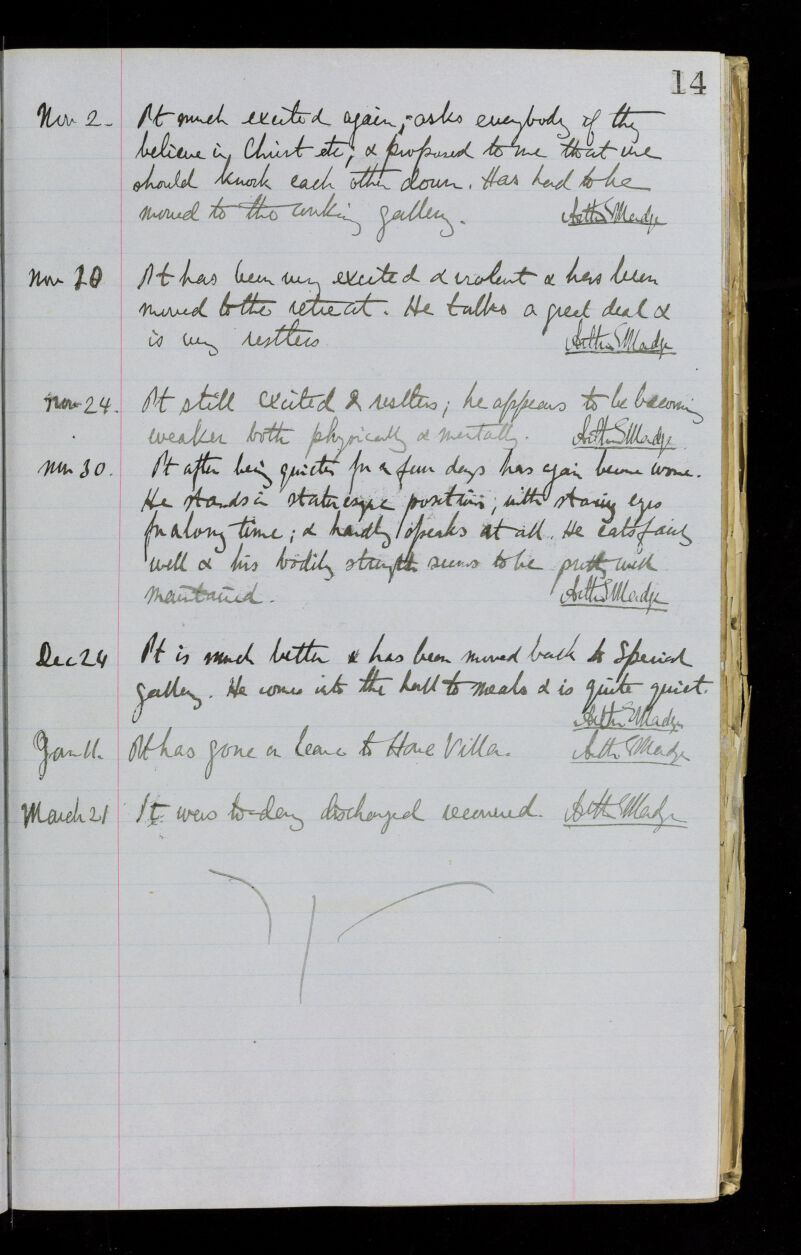 14
Nov 2. Pt much excited again; asks everybody if they
believe in Christ etc; & proposed to me that we
should knock each other down. Has had to be
moved to the gallery. Arthur S Madge
Nov 10 Pt has been very excited & violent & has been
moved to the retreat. He talks a great deal &
is very restless Arthur S Madge
Nov 24. Pt still excited & restless; he appears to be becoming
weaker both physically & mentally. Arthur S Madge
Nov 30. Pt after being quieter for a few days has again become worse.
He stands in statuesque positions, with staring eyes
for a long time; & hardly speaks at all. He eats fairly
well & his bodily strength seems to be pretty well
maintained. Arthur S Madge
Dec 24 Pt is much better & has been moved back to Special
gallery. He comes into the hall to meals & is quite quiet.
Arthur S Madge
Jan 11. Pt has gone on leave to Hove Villa. Arth S Madge
March 21 Pt was to-day discharged recovered. Arth S Madge